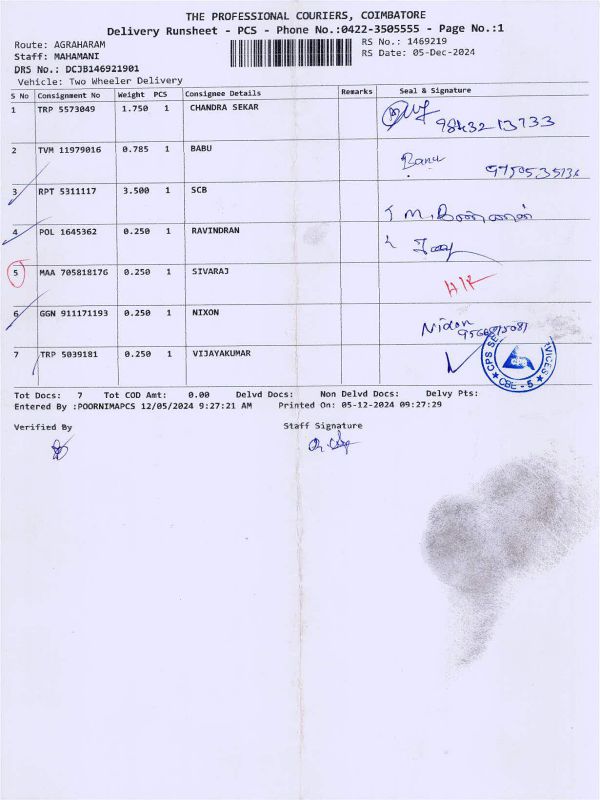 THE PROFESSIONAL COURIERS, COIMBATORE
Delivery Runsheet - PCS - Phone No.:0422-3505555 - Page No.:1
Route: AGRAHARAM
Staff: MAHAMANI
DRS No.: DCJB146921901
Vehicle: Two Wheeler Delivery
RS No.: 1469219
RS Date: 05-Dec-2024
S No Consignment No Weight PCS Consignee Details Remarks Seal & Signature
1 TRP 5573049 1.750 1 CHANDRA SEKAR 9843213733
2 TVM 11979016 0.785 1 BABU
3 RPT 5311117 3.500 1 SCB
4 POL 1645362 0.250 1 RAVINDRAN
5 MAA 705818176 0.250 1 SIVARAJ
6 GGN 911171193 0.250 1 NIXON Nixon
7 TRP 5039181 0.250 1 VIJAYAKUMAR
CBE - 5
Tot Docs: 7 Tot COD Amt: 0.00 Delvd Docs: Non Delvd Docs: Delvy Pts:
Entered By :POORNIMAPCS 12/05/2024 9:27:21 AM Printed On: 05-12-2024 09:27:29
Verified By
Staff Signature